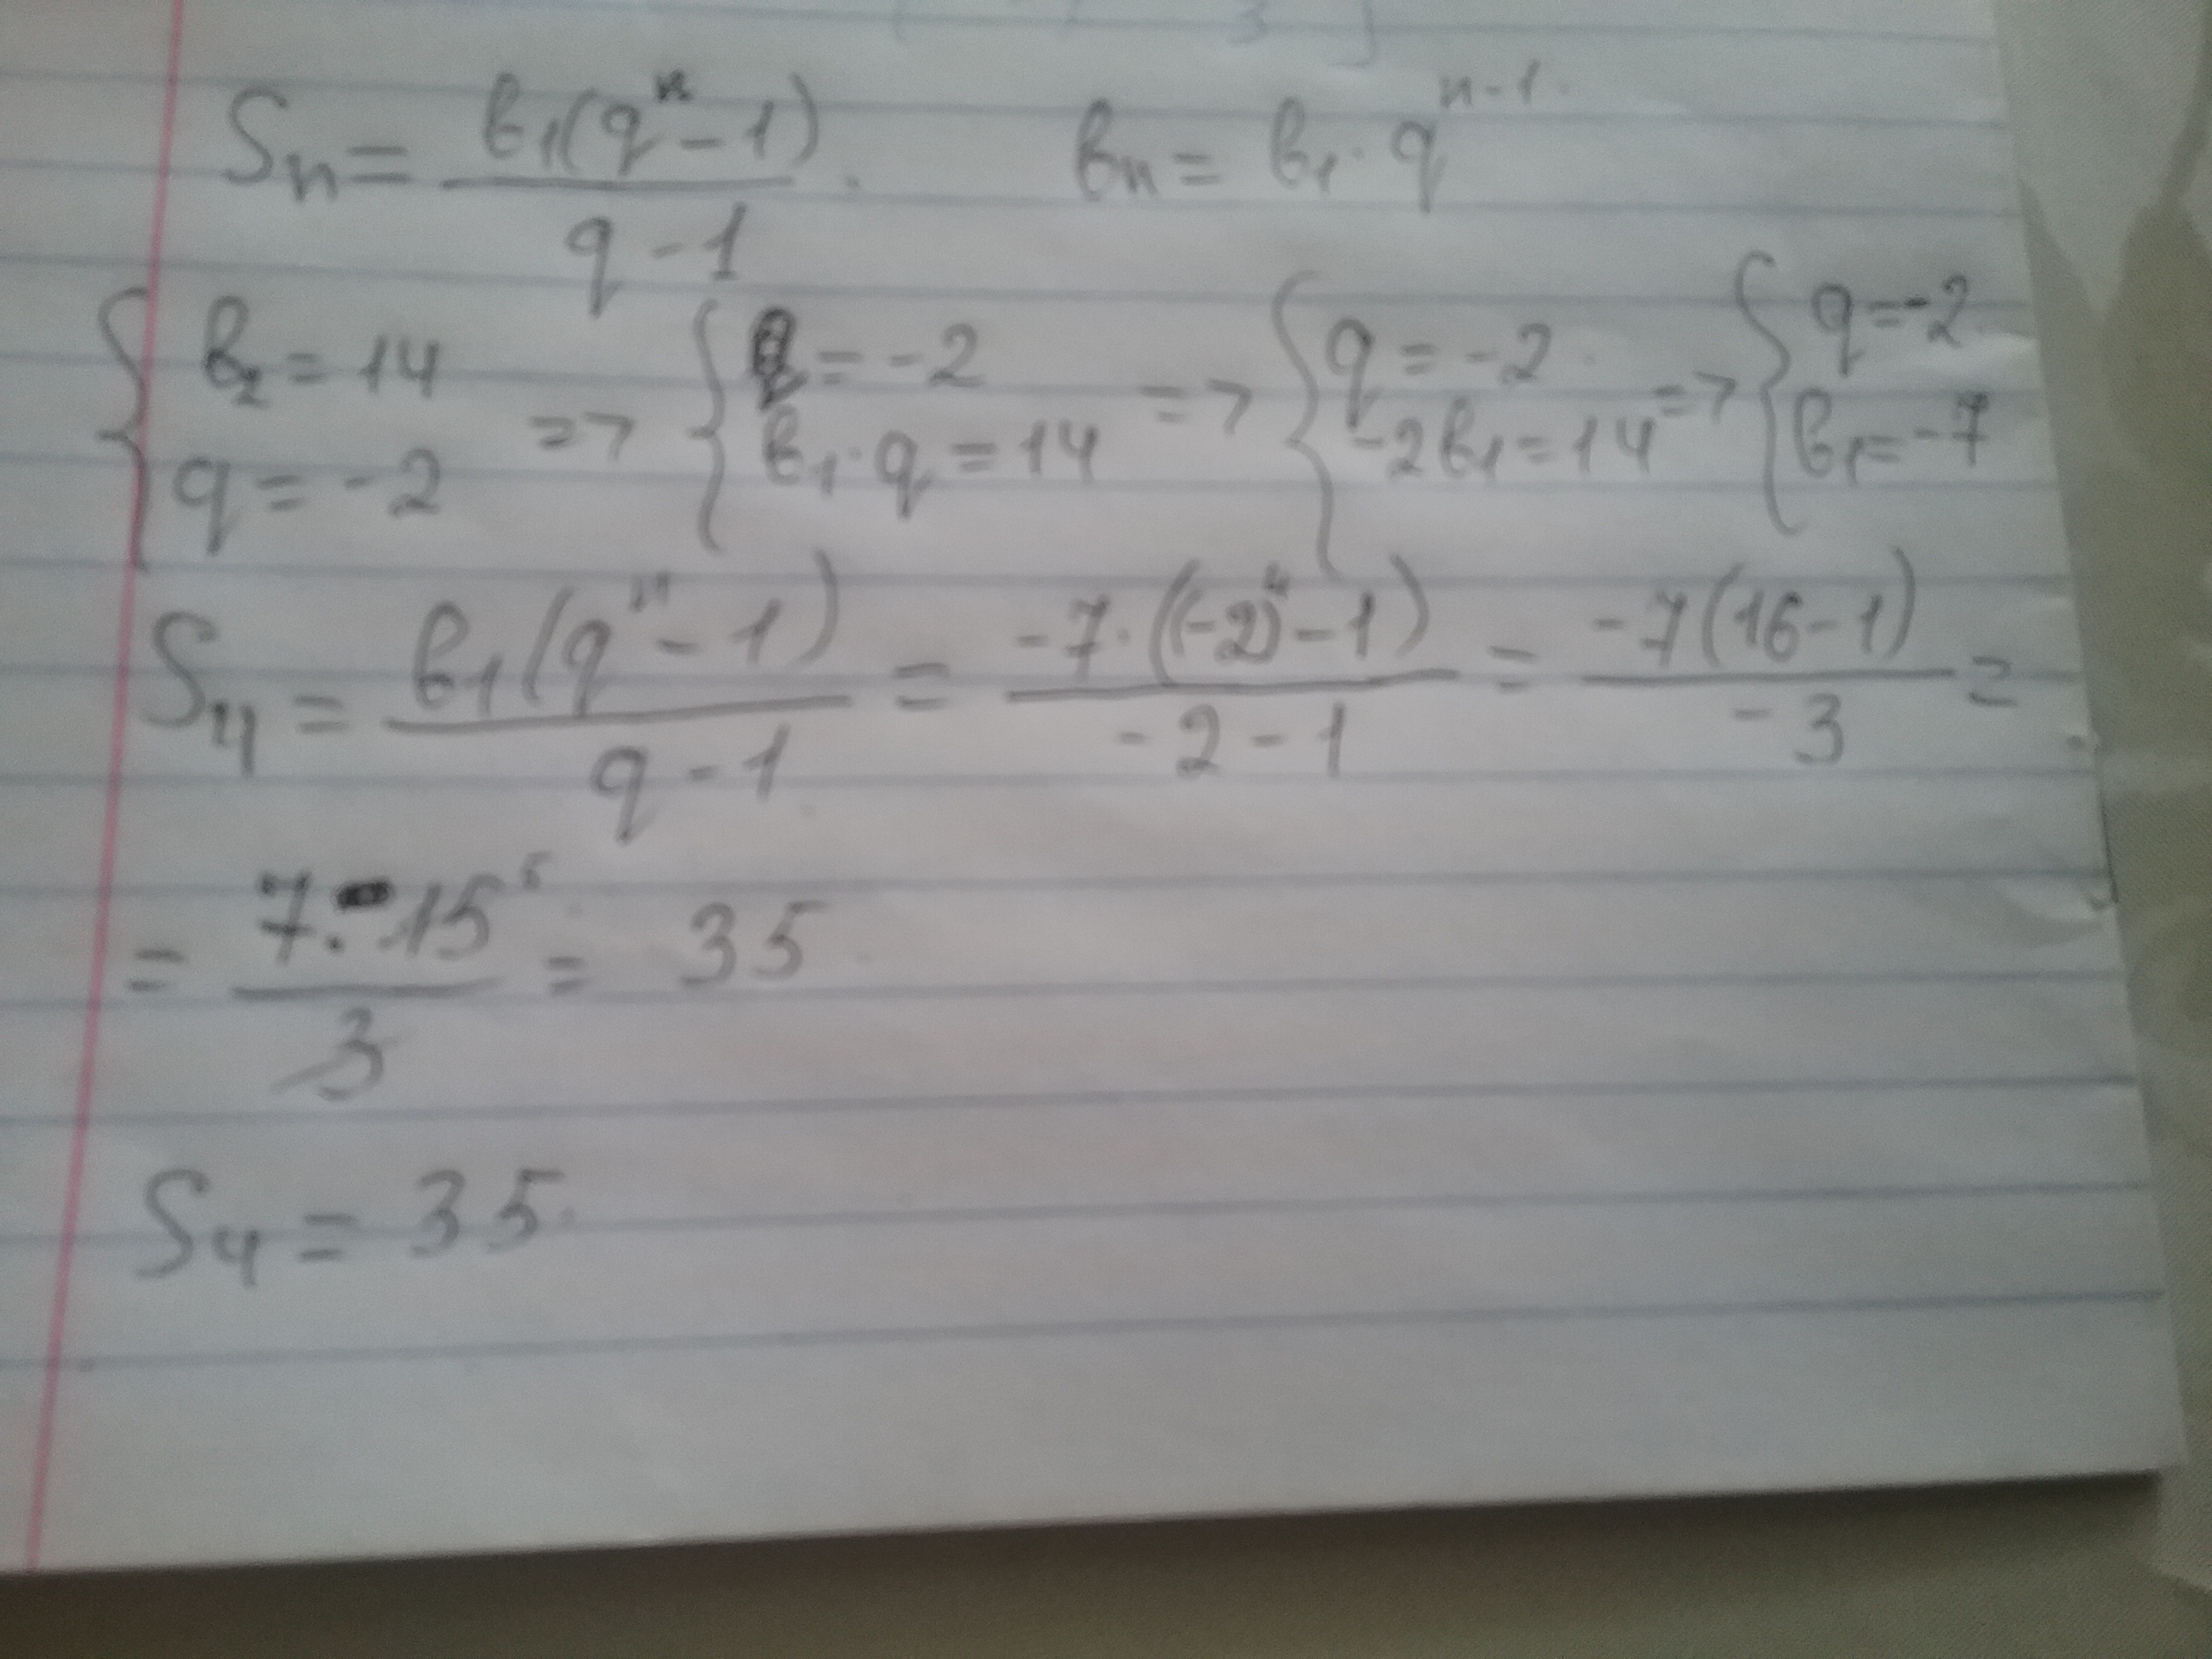 Sn = b₁(qⁿ - 1) / q - 1 . bn = b₁ · qⁿ⁻¹
{ b₂ = 14 q = -2 => { q = -2 b₁ · q = 14 => { q = -2 -2b₁ = 14 => { q = -2 b₁ = -7
S₄ = b₁(qⁿ - 1) / q - 1 = -7 · ((-2)⁴ - 1) / -2 - 1 = -7(16 - 1) / -3 =
= 7 · 15⁵ / 3 = 35
S₄ = 35.